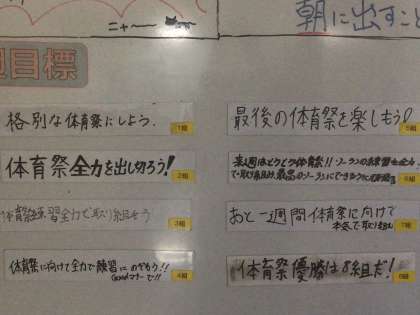 ニャ〜
朝に出すこと
週目標
格別な体育祭にしよう.
1組
体育祭全力を出し切ろう!
2組
体育祭練習全力で取り組もう
3組
体育祭に向けて全力で練習にのぞもう!!
Goodマナーで!!
4組
最後の体育祭を楽しもう
5組
来週はとうとう体育祭!! ソーランの練習も全力
で取り組み、最高のソーランにできるように
6組
あと一週間体育祭に向けて
本気で取り組む
7組
体育祭優勝は8組だ!
8組